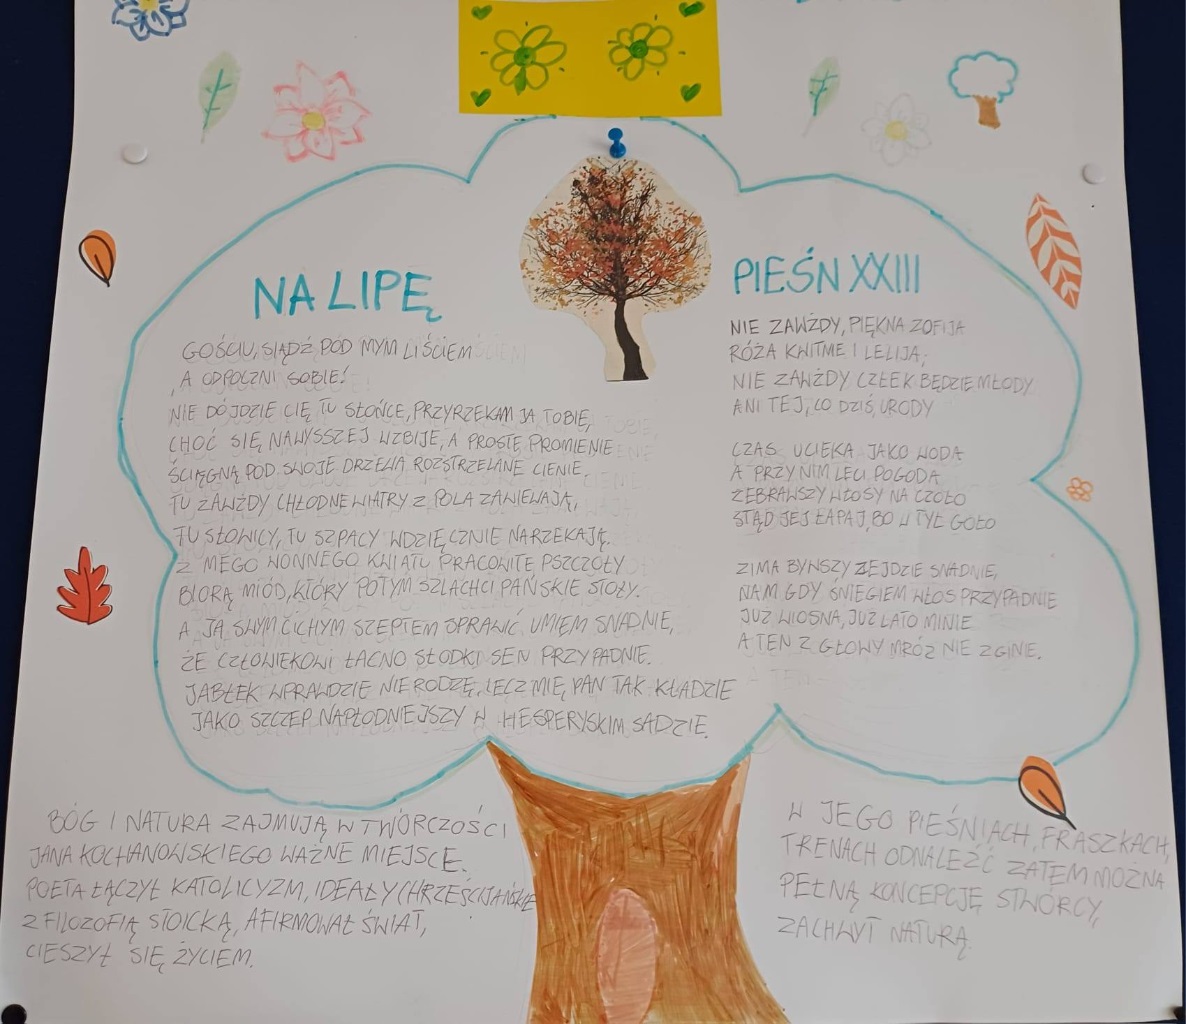 NA LIPĘ
GOŚCIU, SIĄDŹ POD MYM LIŚCIEM
, A ODPOCZNI SOBIE!
NIE DÓJDZIE CIĘ TU SŁOŃCE, PRZYRZEKAM JA TOBIE,
CHOĆ SIĘ NAWYSSZEJ WZBIJE, A PROSTE PROMIENIE
ŚCIĘGNĄ POD SWOJE DRZEWA ROZSTRZELANE CIENIE.
TU ZAWŻDY CHŁODNE WIATRY Z POLA ZAWIEWAJĄ,
TU SŁOWICY, TU SZPACY WDZIĘCZNIE NARZEKAJĄ.
Z MEGO WONNEGO KWIATU PRACOWITE PSZCZOŁY
BIORĄ MIÓD, KTÓRY POTYM SZLACHCI PAŃSKIE STOŁY.
A JA SWYM CICHYM SZEPTEM SPRAWIĆ UMIEM SNADNIE,
ŻE CZŁOWIEKOWI ŁACNO SŁODKI SEN PRZYPADNIE.
JABŁEK WPRAWDZIE NIE RODZĘ, LECZ MIĘ PAN TAK KŁADZIE
JAKO SZCZEP NAPŁODNIEJSZY W HESPERYSKIM SADZIE.
PIEŚN XXIII
NIE ZAWŻDY, PIĘKNA ZOFIJA
RÓŻA KWITNIE I LELIJA;
NIE ZAWŻDY CZŁEK BĘDZIE MŁODY
ANI TEJ, CO DZIŚ, URODY
CZAS UCIEKA JAKO WODA
A PRZY NIM LECI POGODA
ZEBRAWSZY WŁOSY NA CZOŁO
STĄD JEJ ŁAPAJ, BO W TYŁ GOŁO
ZIMA BYWSZY ZEJDZIE SNADNIE,
NAM GDY ŚNIEGIEM WŁOS PRZYPADNIE
JUŻ WIOSNA, JUŻ LATO MINIE
A TEN Z GŁOWY MRÓZ NIE ZGINE.
BÓG I NATURA ZAJMUJĄ W TWÓRCZOŚCI
JANA KOCHANOWSKIEGO WAŻNE MIEJSCE.
POETA ŁĄCZYŁ KATOLICYZM, IDEAŁY CHRZEŚCIJAŃSKIE
Z FILOZOFIĄ STOICKĄ, AFIRMOWAŁ ŚWIAT,
CIESZYŁ SIĘ ŻYCIEM.
W JEGO PIEŚNIACH, FRASZKACH,
TRENACH ODNALEŹĆ ZATEM MOŻNA
PEŁNĄ KONCEPCJĘ STWÓRCY,
ZACHWYT NATURĄ.